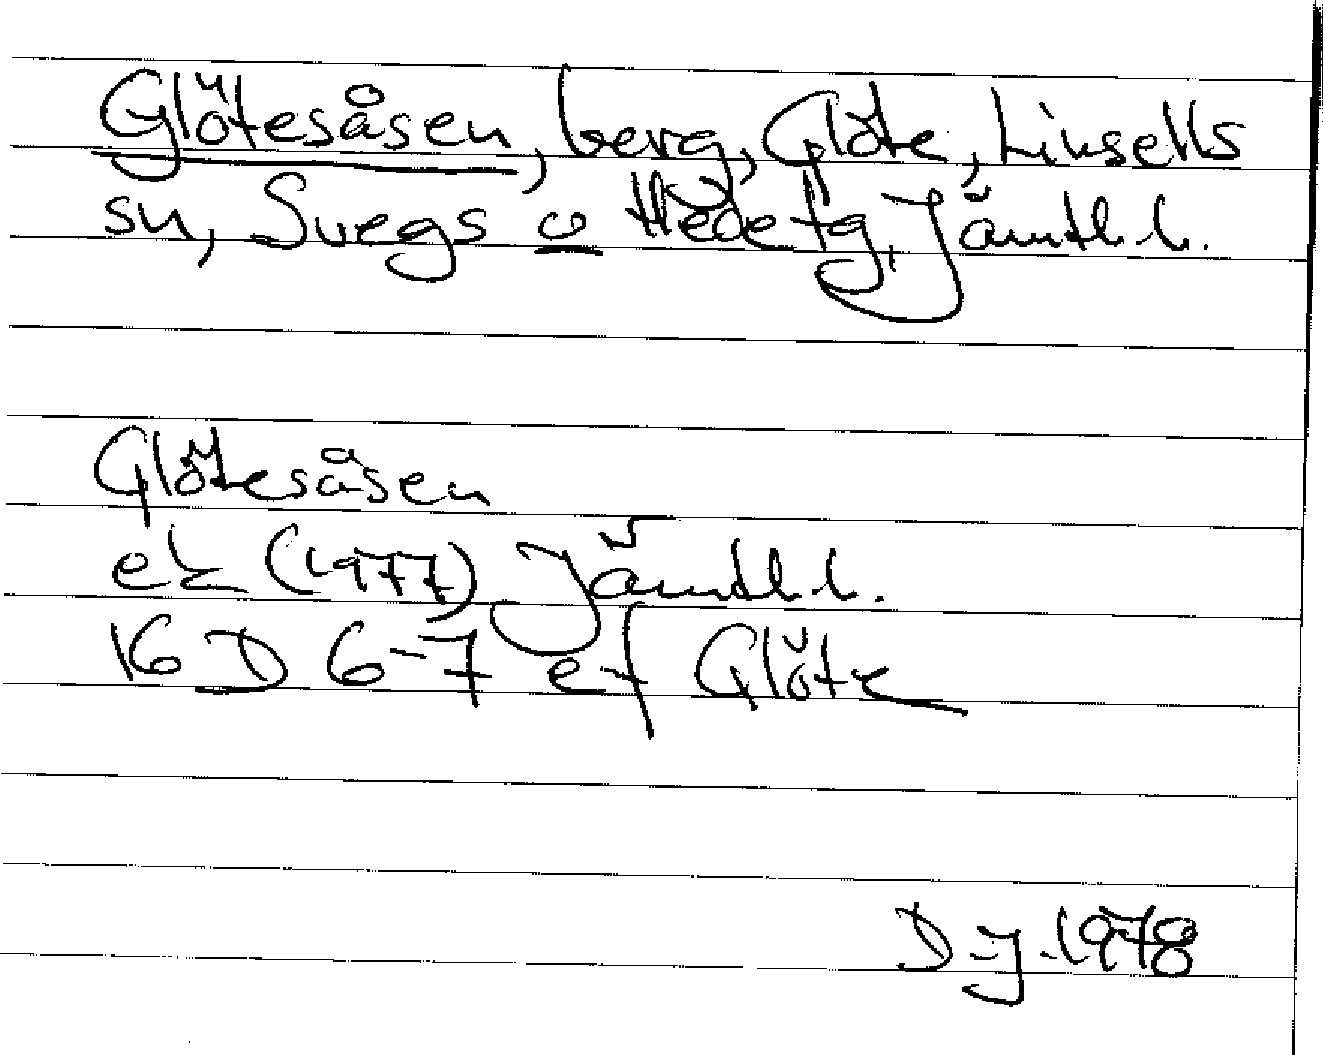 Glötesåsen, berg, Glöte, Linsells
sn, Svegs o Hede tg, Jämtl.l.
Glötesåsen
ek (1977) Jämtl.l.
16 D 6-7 ef Glöte
D-J. 1978